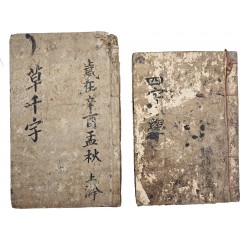 草千字
歲在辛酉孟秋上澣
四字